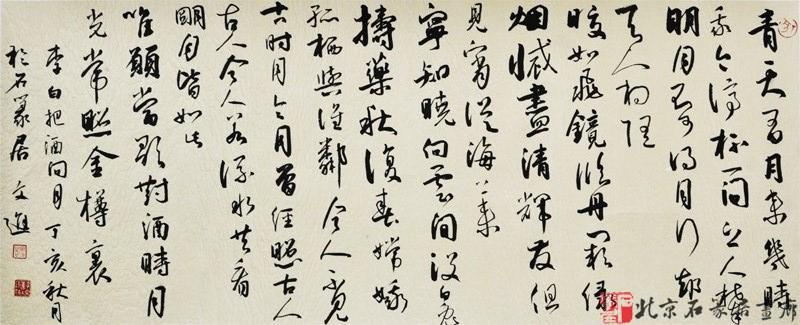 青天有月来幾時
我今停杯一问之人攀
明月不可得月行却
与人相随
皎如飛鏡临丹闕绿
烟滅盡清輝发但
見宵从海上来
寧知曉向雲间没白兔
擣藥秋復春嫦娥
孤栖與谁鄰今人不見
古时月今月曾经照古人
古人今人若流水共看
明月皆如此
唯願當歌對酒時月
光常照金樽裏
李白把酒问月丁亥秋月
於石篆居文進
北京石篆居畫廊